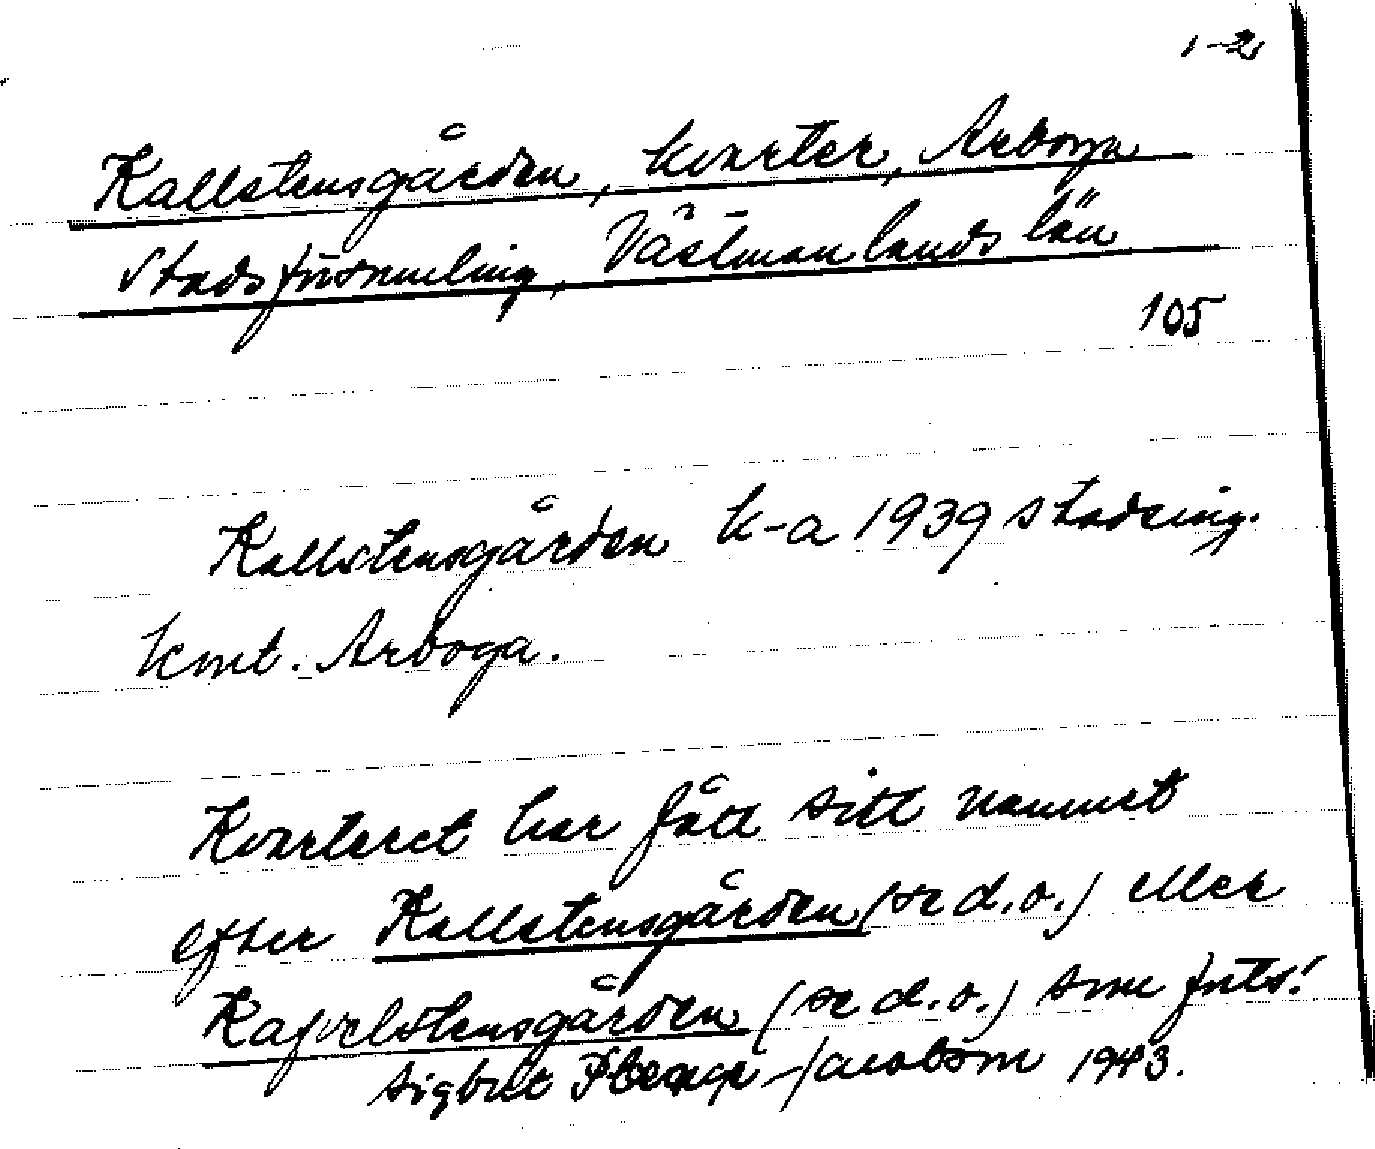 1-2,
Kallstensgården, kvarter, Arboga
Stadsförsamling, Västmanlands län
105
Kallstensgården k-a 1939 stadsing.
kont. Arboga.
Kvarteret har fått sitt namnet
efter Kallstensgården (se d.o.) eller
Kafvelstensgården (se d.o.) som
Sigbrit -Jacobson 1943.